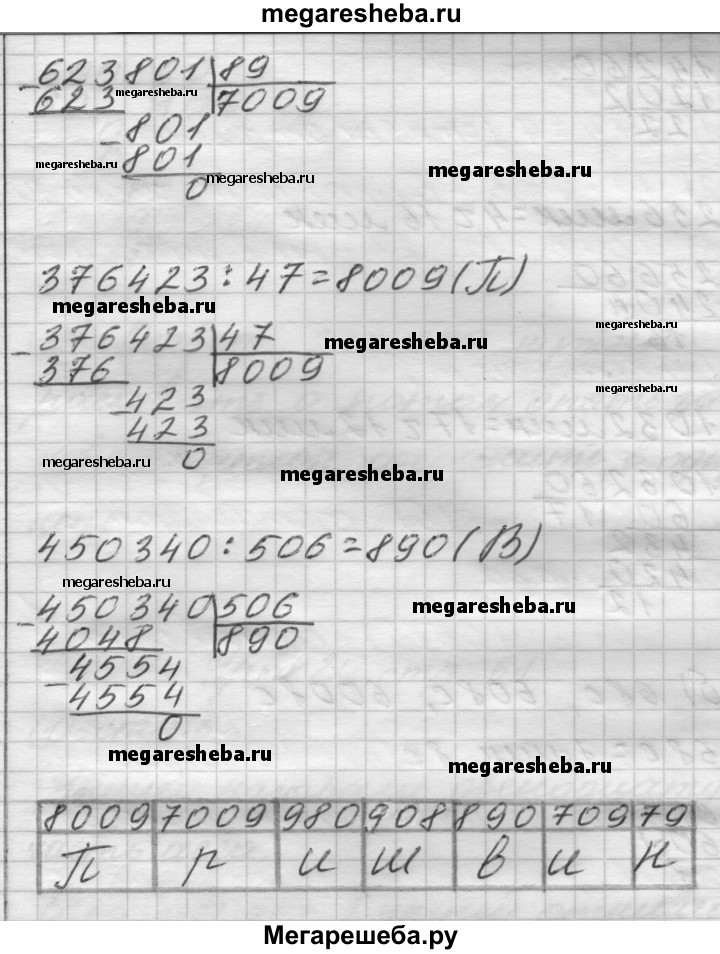 megaresheba.ru
623801 89
623 megaresheba.ru 7009
801
megaresheba.ru 801
0 megaresheba.ru megaresheba.ru
376423 : 47 = 8009 (П)
megaresheba.ru
megaresheba.ru
376423 47 megaresheba.ru
376 8009
megaresheba.ru
423
423
megaresheba.ru 0 megaresheba.ru
450340 : 506 = 890 (В)
megaresheba.ru
450340 506 megaresheba.ru
4048 890
4554
4554
0
megaresheba.ru megaresheba.ru
8009 7009 980 908 890 709 79
П р и ш в и н
Мегарешеба.ру